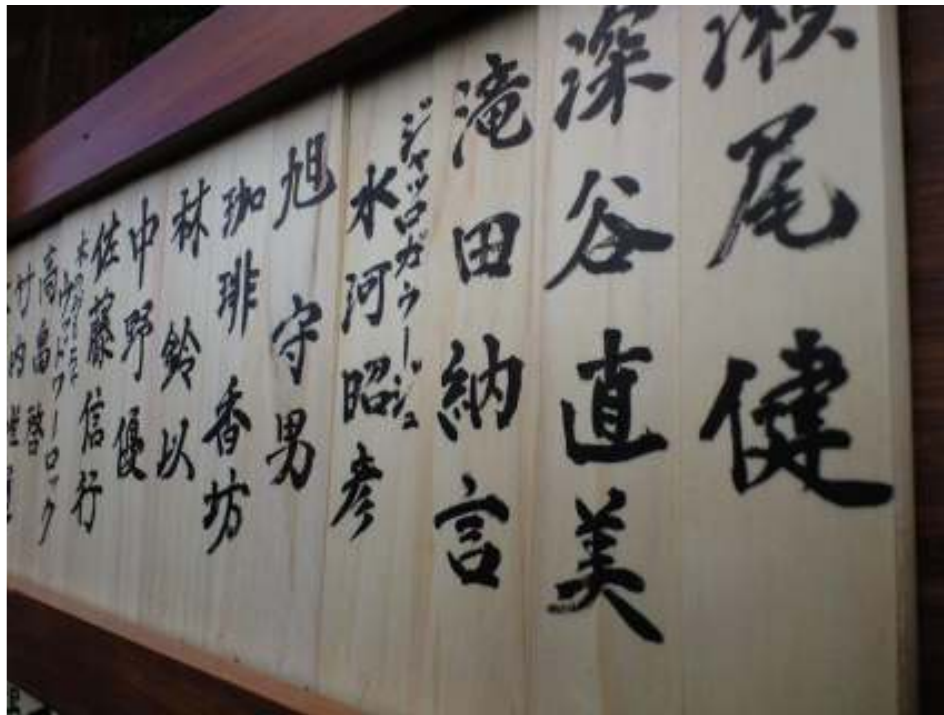 瀬尾健
深谷直美
滝田納言
ジャッロガウージュ
水河昭彦
旭守男
珈琲香坊
林鈴以
中野優
佐藤信行
ナットワーロック
高畠啓
竹内